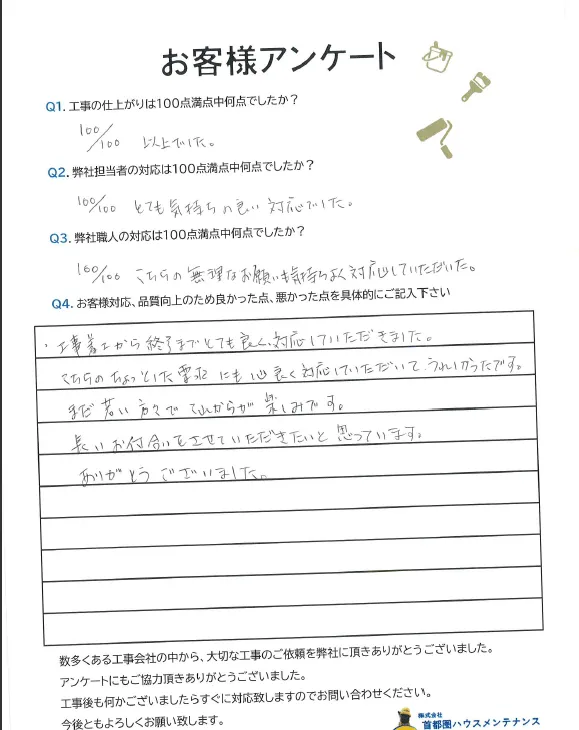 お客様アンケート
Q1. 工事の仕上がりは100点満点中何点でしたか？
100/100 以上でした。
Q2. 弊社担当者の対応は100点満点中何点でしたか？
100/100 とても気持ちの良い対応でした。
Q3. 弊社職人の対応は100点満点中何点でしたか？
100/100 こちらの無理なお願いも気持ちよく対応していただいた。
Q4. お客様対応、品質向上のため良かった点、悪かった点を具体的にご記入下さい
・工事着工から終了までとても良く対応していただきました。
こちらのちょっとした要求にも心良く対応していただいてうれしかったです。
まだ若い方々でこれからが楽しみです。
長いお付合いをさせていただきたいと思っています。
ありがとうございました。
数多くある工事会社の中から、大切な工事のご依頼を弊社に頂きありがとうございました。
アンケートにもご協力頂きありがとうございました。
工事後も何かございましたらすぐに対応致しますのでお問い合わせください。
今後ともよろしくお願い致します。
株式会社
首都圏ハウスメンテナンス